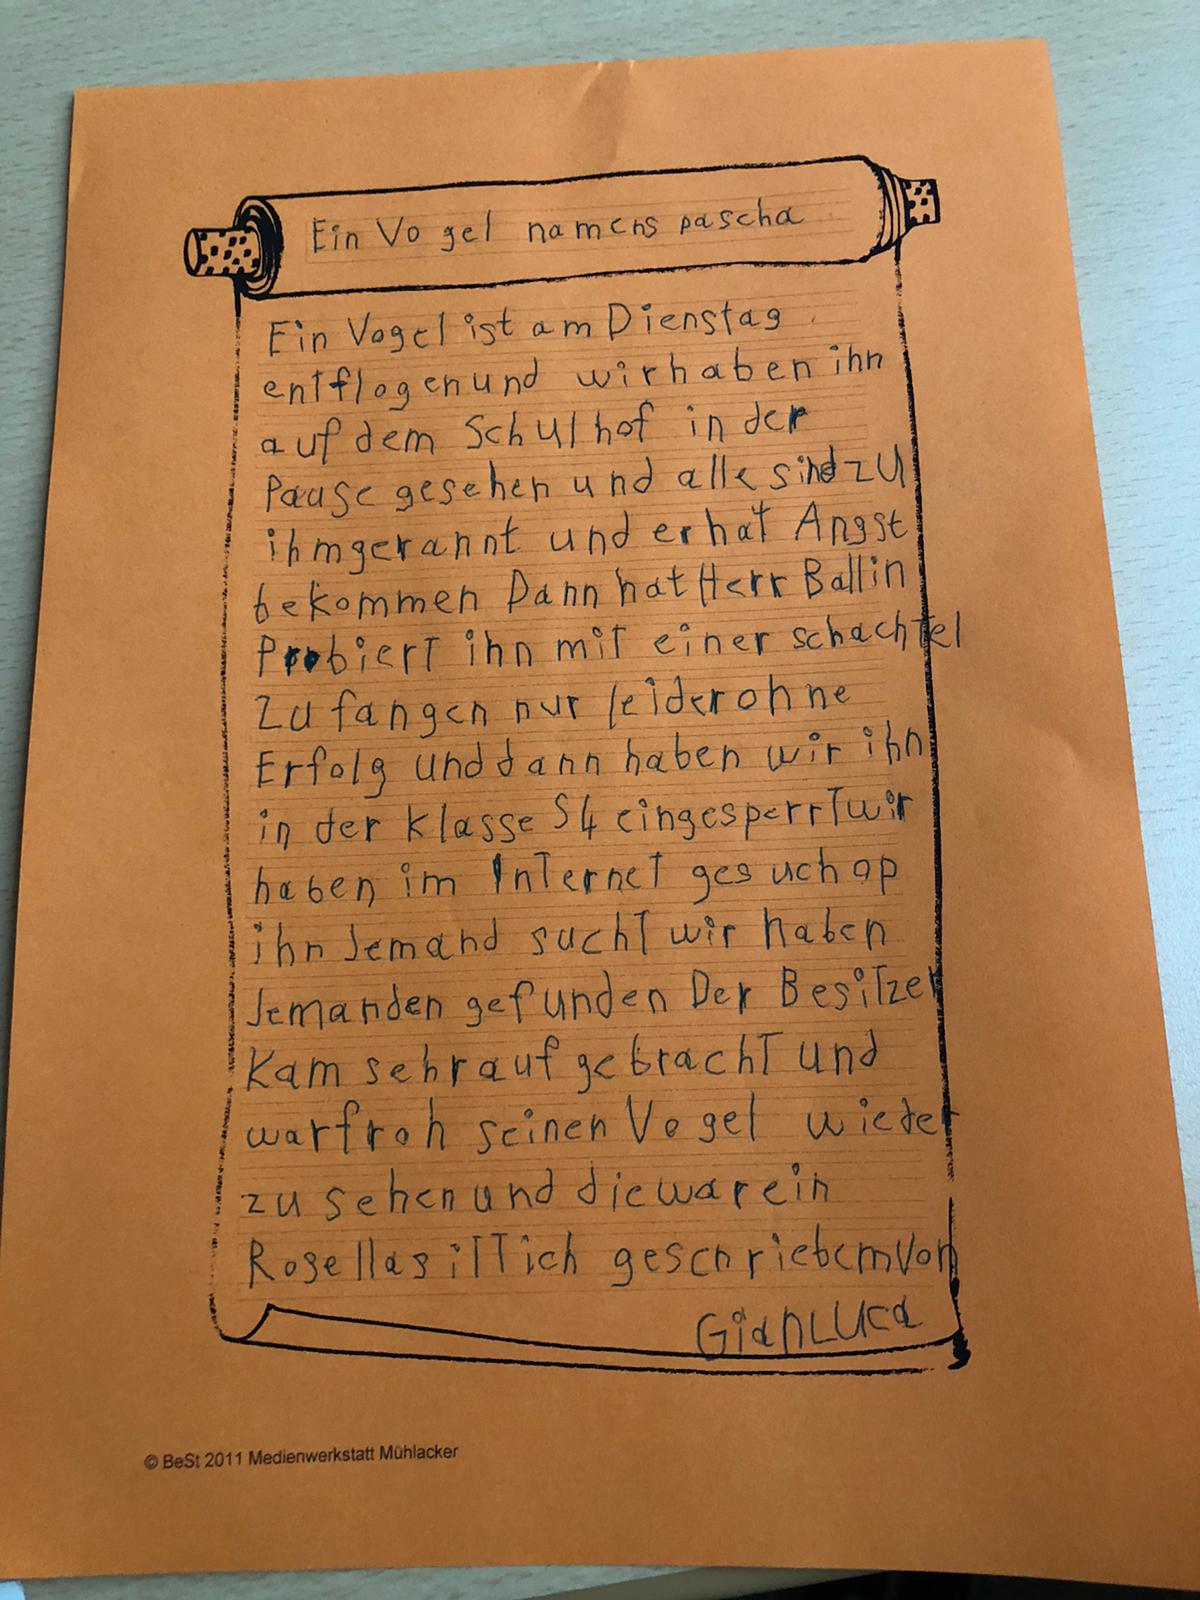 Ein Vogel namens pascha
Ein Vogel ist am Dienstag
entflogen und wir haben ihn
auf dem Schulhof in der
Pause gesehen und alle sind zu
ihm gerannt und er hat Angst
bekommen Dann hat Herr Ballin
Probiert ihn mit einer schachtel
Zu fangen nur leider ohne
Erfolg und dann haben wir ihn
in der klasse S4 eingesperrt wir
haben im Internet gesuch op
ihn Jemand sucht wir haben
Jemanden gefunden Der Besitzer
Kam sehr auf gebracht und
war froh seinen Vogel wieder
zu sehen und die war ein
Rosellasittich geschriebem von
GianLuca
© BeSt 2011 Medienwerkstatt Mühlacker